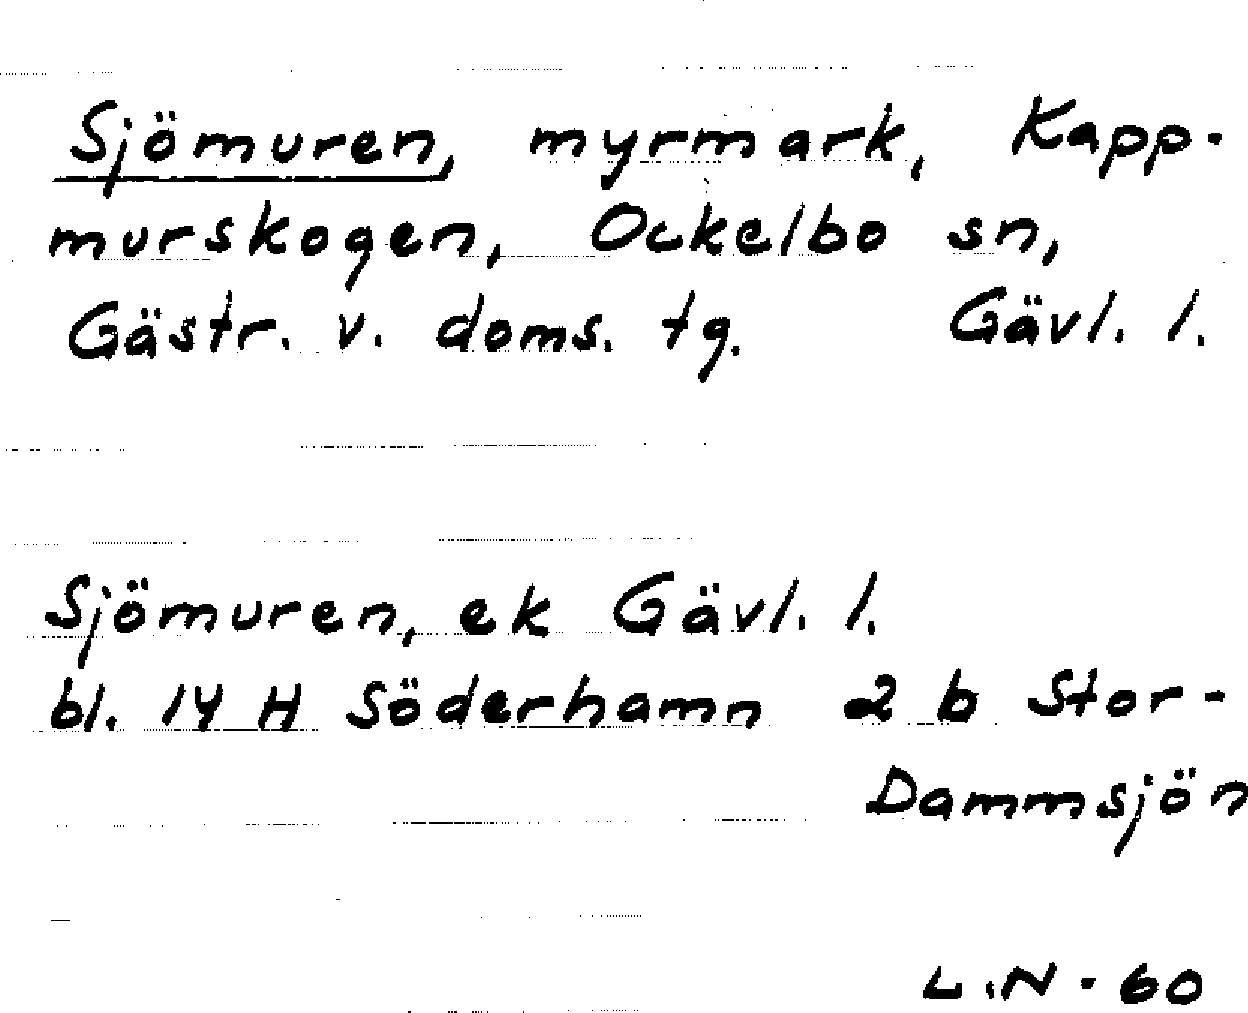 Sjömuren, myrmark, Kapp-
murskogen, Ockelbo sn,
Gästr. v. doms. tg. Gävl. l.
Sjömuren, ek Gävl. l.
bl. 14 H Söderhamn 2 b Stor-
Dammsjön
L.N - 60